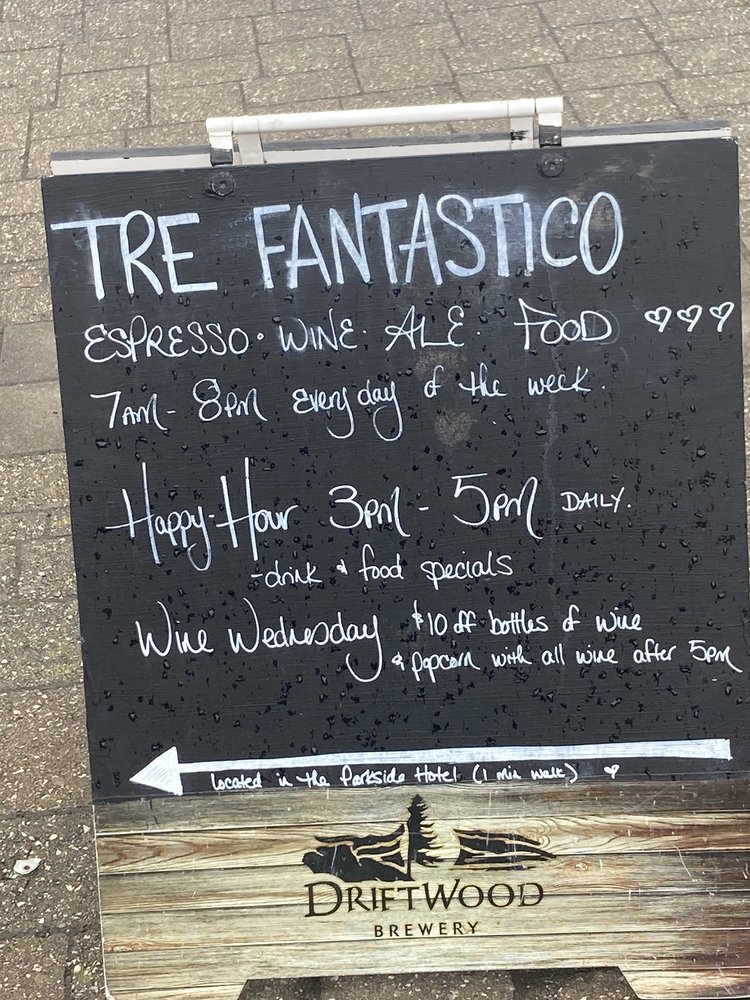 TRE FANTASTICO
ESPRESSO · WINE · ALE · FOOD ♡♡♡
7AM - 8PM every day of the week.
Happy Hour 3PM - 5PM DAILY.
- drink & food specials
Wine Wednesday $10 off bottles of wine
& popcorn with all wine after 5pm
located in the Parkside Hotel (1 min walk) ♡
DRIFTWOOD
BREWERY